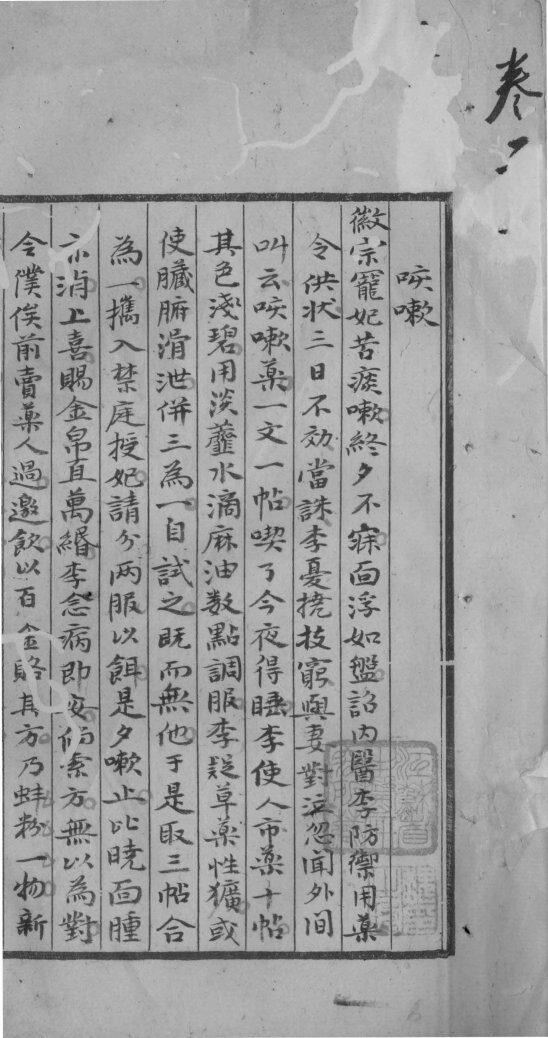 卷一
咳嗽
徽宗寵妃苦痰嗽終夕不寐面浮如盤詔内醫李防禦用藥
令供狀三日不効當誅李憂撓技窮與妻對泣忽聞外間
叫云咳嗽藥一文一帖喫了今夜得睡李使人市藥十帖
其色淺碧用淡虀水滴麻油数點調服李疑草藥性獷或
使臟腑滑泄併三為一自試之既而無他于是取三帖合
為一攜入禁庭授妃請分兩服以餌是夕嗽止比曉面腫
亦消上喜賜金帛直萬緡李念病即安倘索方無以為對
令僕俟前賣藥人過邀飲以百金賂其方乃蚌粉一物新